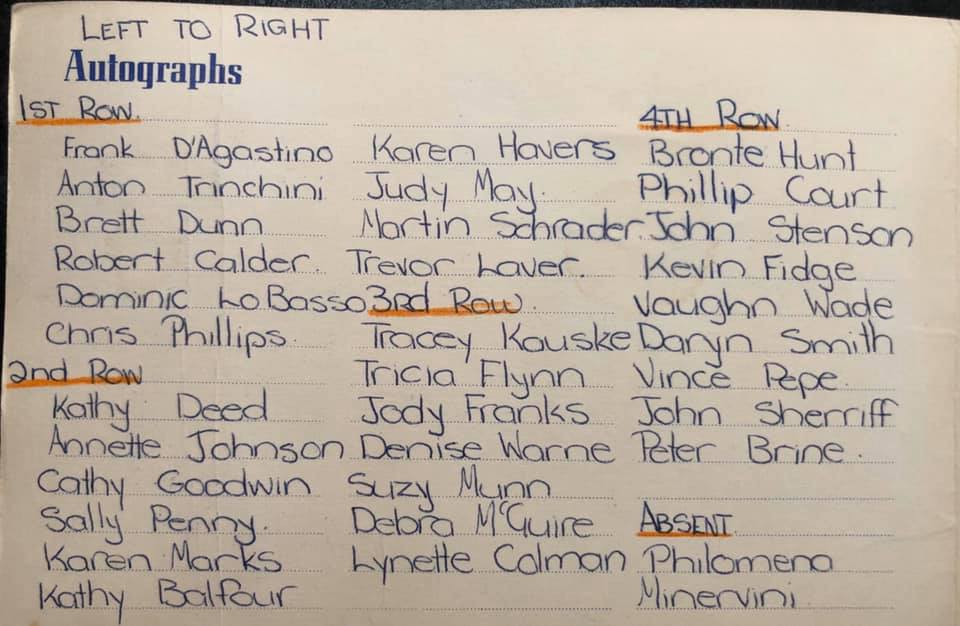 LEFT TO RIGHT
Autographs
1ST ROW.
Frank D'Agastino
Anton Trinchini
Brett Dunn
Robert Calder.
Dominic Lo Basso
Chris Phillips.
2nd Row
Kathy Deed
Annette Johnson
Cathy Goodwin
Sally Penny.
Karen Marks
Kathy Balfour
Karen Havers
Judy May.
Martin Schrader.
Trevor Laver.
3rd Row.
Tracey Kauske
Tricia Flynn
Jody Franks
Denise Warne
Suzy Munn
Debra McGuire
Lynette Colman
4TH ROW.
Bronte Hunt
Phillip Court
John Stenson
Kevin Fidge
Vaughn Wade
Daryn Smith
Vince Pepe.
John Sherriff
Peter Brine.
ABSENT
Philomena
Minervini